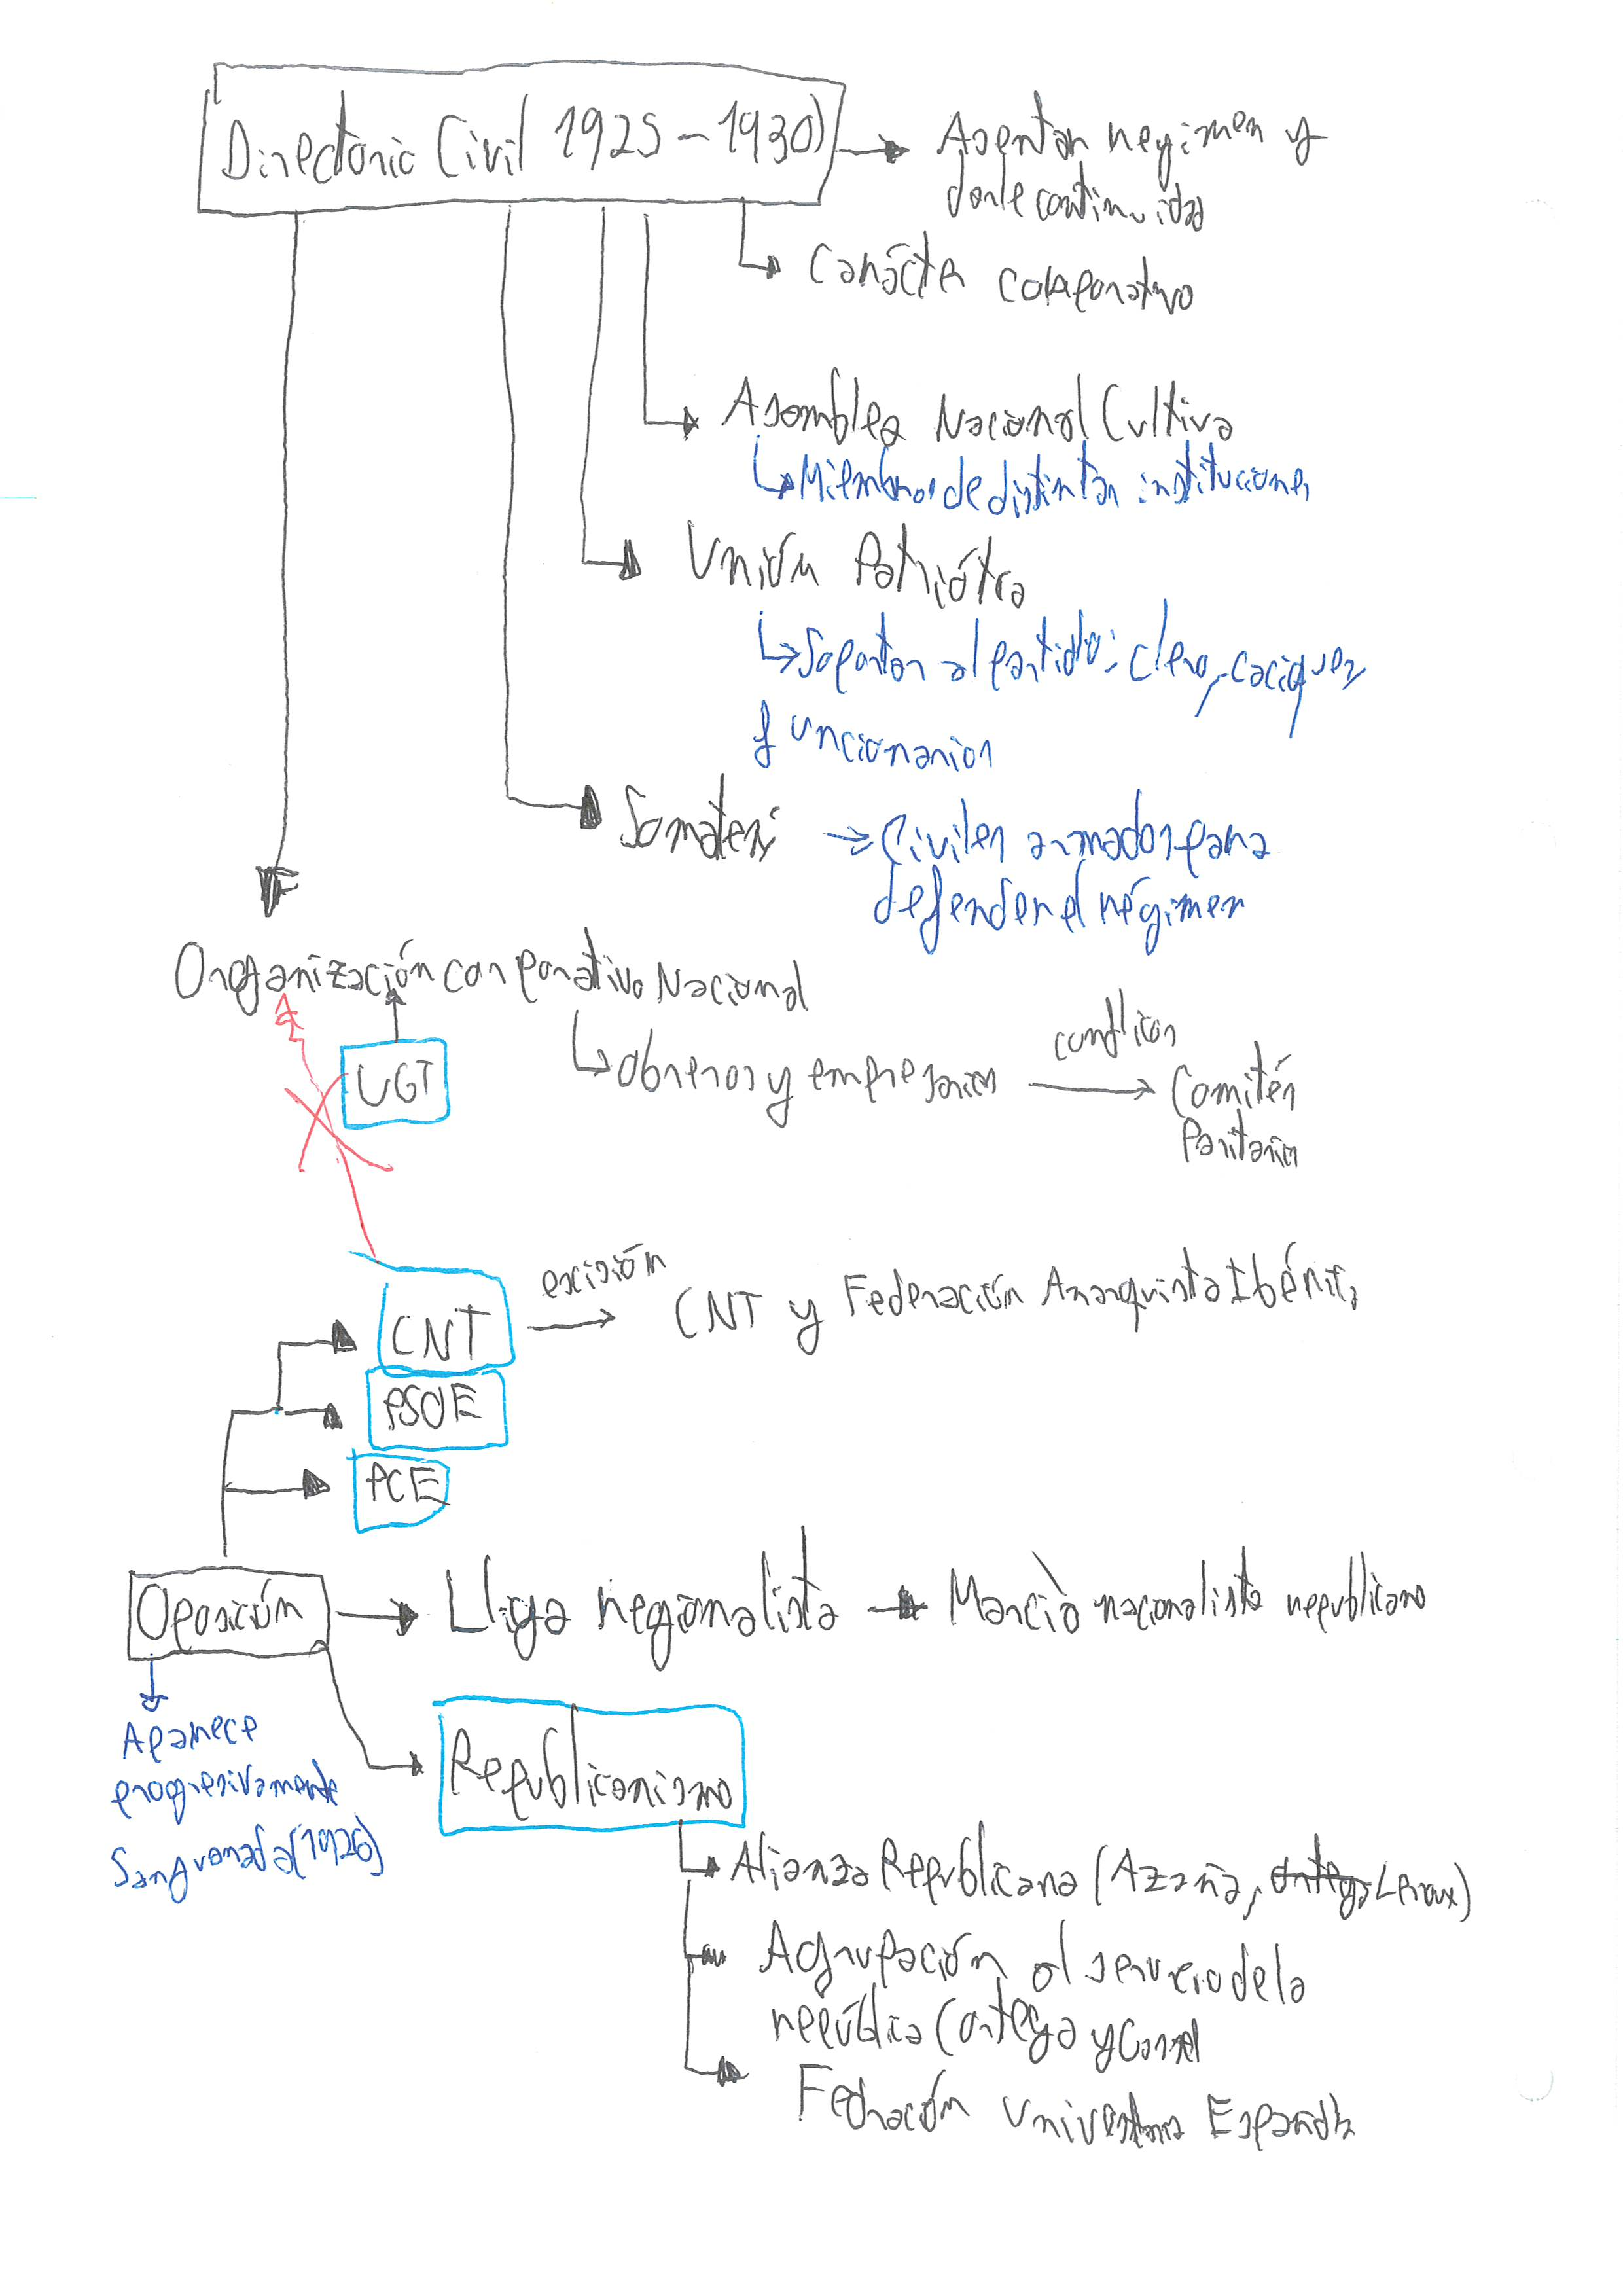 Directorio Civil 1925-1930)
Asentar regimen y
darle continuidad
Carácter corporativo
Asamblea Nacional Cultiva
Miembros de distintas instituciones
Unión Patriótica
Soportan al partido: clero, caciques,
funcionarios
Somatení
Civiles armados para
defender el régimen
Organización corporativa Nacional
UGT
Obreros y empresarios
conflictos
Comités
Paritarios
CNT
escisión
CNT y Federación Anarquista Ibérica
PSOE
PCE
Oposición
Lliga regionalista
Marció nacionalista republicano
Aparece
progresivamente
Sanjuanada (1926)
Republicanismo
Alianza Republicana (Azaña, Ortega Leroux)
Agrupación al servicio de la
república (Ortega y
Fedración Española